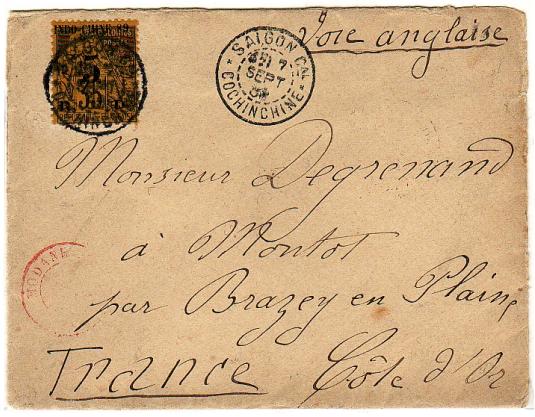 INDO-CHINE 89.
5
35
R D
SAIGON CAL
7
SEPT
COCHINCHINE
Voie anglaise
Monsieur Degrenand
à Montot
par Brazey en Plaine
France Côte d'Or
MODANE